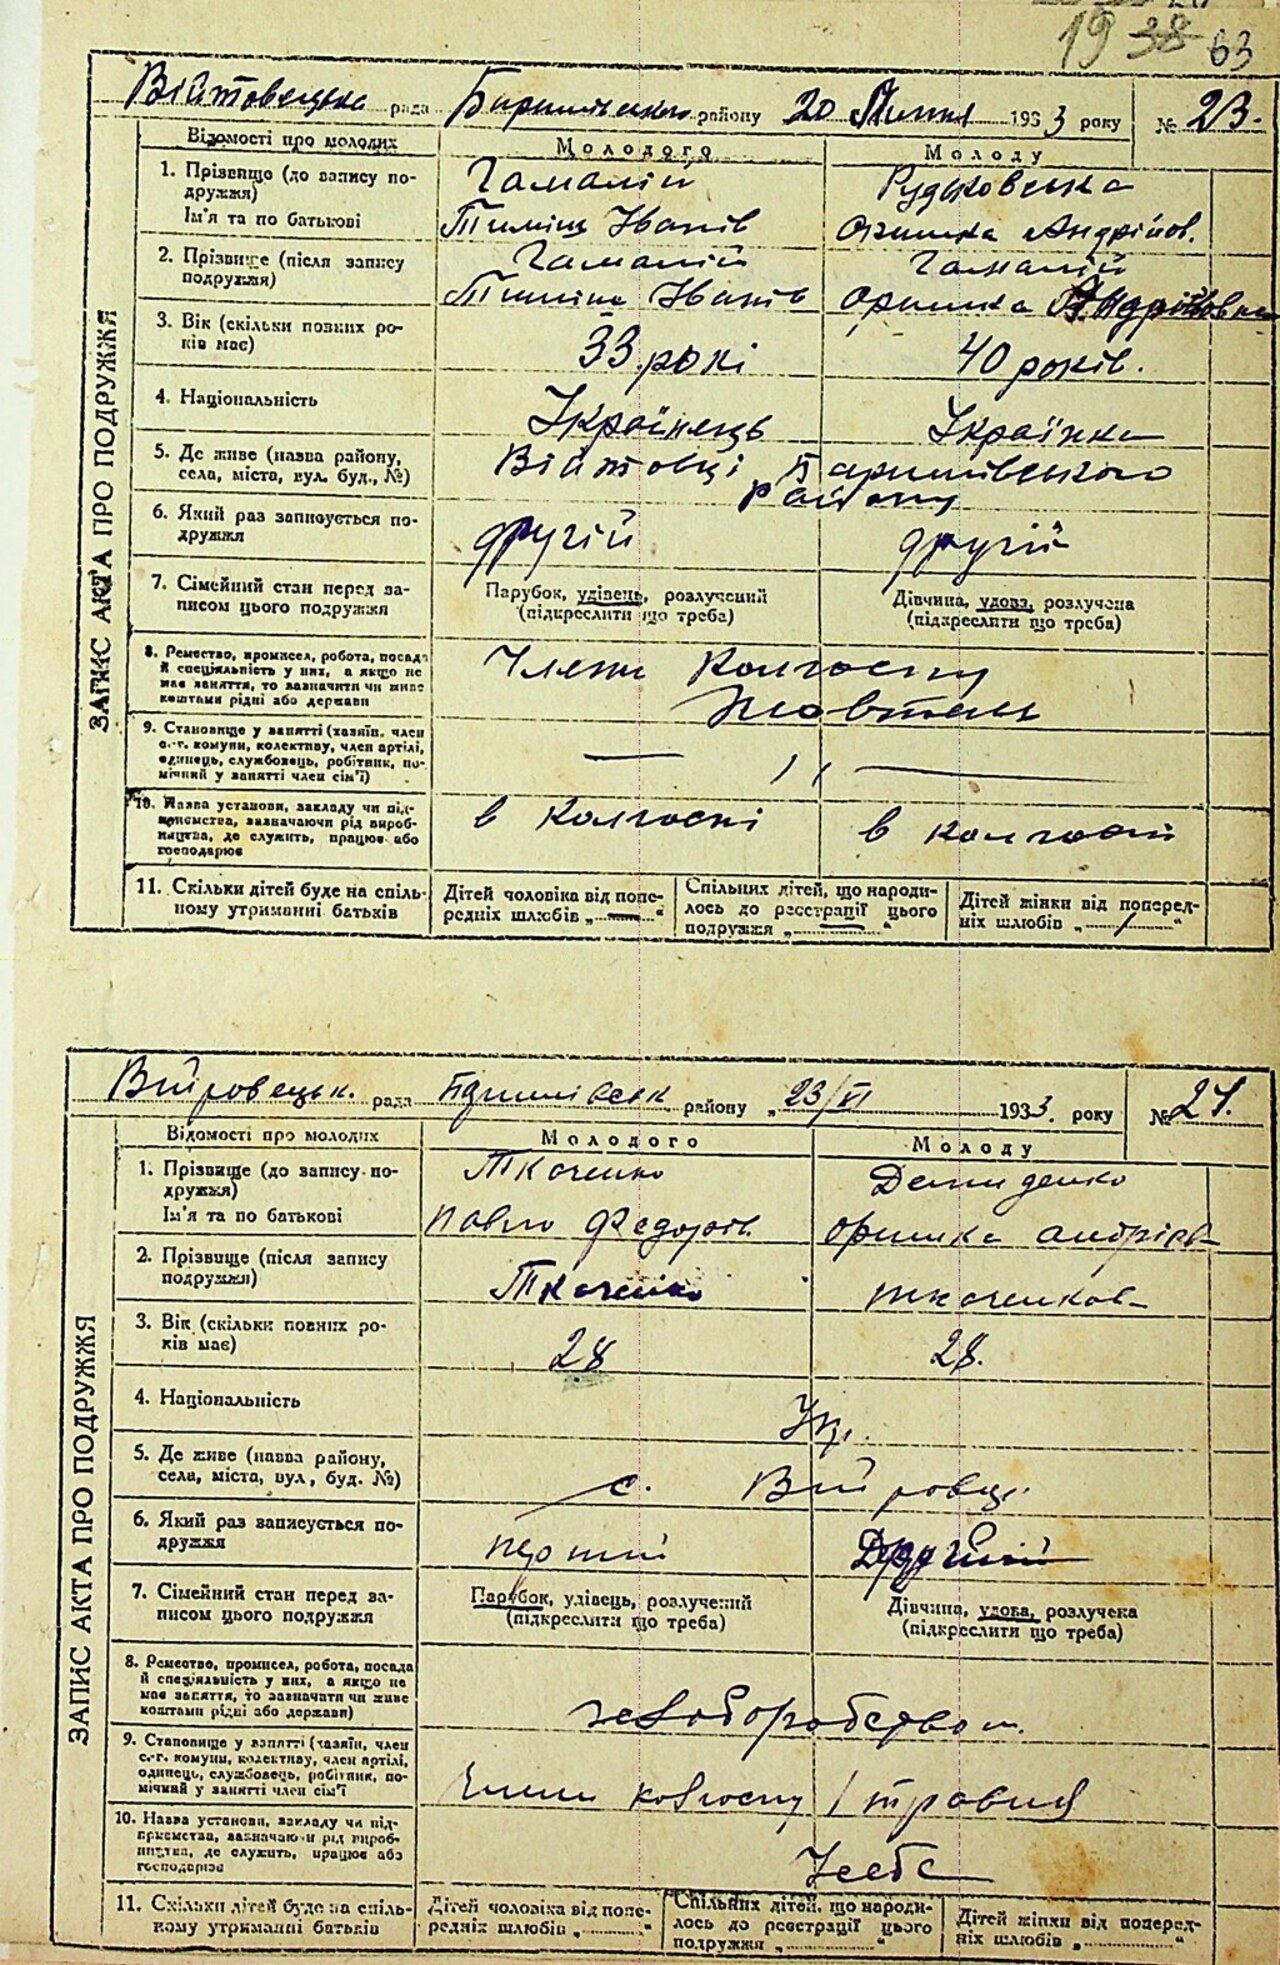 19 38 63
Війтовецька рада Баришівського району 20 Липня 1933 року № 23.
ЗАПИС АКТА ПРО ПОДРУЖЖЯ
Відомості про молодих
Молодого
Молоду
1. Прізвище (до запису по-
дружжя)
Ім'я та по батькові
Гамалій
Тиміш Іванів
Рудьковська
Оришка Андрійов.
2. Прізвище (після запису
подружжя)
Гамалій
Тиміш Іванів
Гамалій
Оришка Андріївна
3. Вік (скільки повних ро-
ків має)
33 рокі
40 років.
4. Національність
Українець
Українка
5. Де живе (назва району,
села, міста, вул. буд., №)
Війтовці Баришівського
району
6. Який раз записується по-
дружжя
другій
другій
7. Сімейний стан перед за-
писом цього подружжя
Парубок, удівець, розлучений
(підкреслити що треба)
Дівчина, удова, розлучена
(підкреслити що треба)
8. Ремество, промисел, робота, посада
й спеціяльність у них, а якщо не
має заняття, то зазначити чи живе
коштами рідні або держави
Члени Колгоспу
Жовтень
9. Становище у занятті (хазяїн, член
с.-г. комуни, колективу, член артілі,
одинець, службовець, робітник, по-
мічний у занятті член сім'ї)
— ,, —
10. Назва установи, закладу чи під-
приємства, зазначаючи рід вироб-
ництва, де служить, працює або
господарює
в колгоспі
в колгоспі
11. Скільки дітей буде на спіль-
ному утриманні батьків
Дітей чоловіка від попе-
редніх шлюбів „ — “
Спільних дітей, що народи-
лось до реєстрації цього
подружжя „ — “
Дітей жінки від поперед-
ніх шлюбів „ / “
рада району 23/VI 1933. року № 24.
ЗАПИС АКТА ПРО ПОДРУЖЖЯ
Відомості про молодих
Молодого
Молоду
1. Прізвище (до запису по-
дружжя)
Ім'я та по батькові
Ткаченко
Павло Федорів
Демиденко
Оришка Андрієв
2. Прізвище (після запису
подружжя)
Ткаченко
3. Вік (скільки повних ро-
ків має)
28
28.
4. Національність
Укр.
5. Де живе (назва району,
села, міста, вул, буд. №)
с.
6. Який раз записується по-
дружжя
перший
Другий
7. Сімейний стан перед за-
писом цього подружжя
Парубок, удівець, розлучений
(підкреслити що треба)
Дівчина, удова, розлучена
(підкреслити що треба)
8. Ремество, промисел, робота, посада
й спеціяльність у них, а якщо не
має заняття, то зазначити чи живе
коштами рідні або держави)
9. Становище у занятті (хазяїн, член
с.-г. комуни, колективу, член артілі,
одинець, службовець, робітник, по-
мічний у занятті член сім'ї
колгоспу 1 травня
10. Назва установи, закладу чи під-
приємства, зазначаючи рід вироб-
ництва, де служить, працює або
господарює
11. Скільки дітей буде на спіль-
ному утриманні батьків
Дітей чоловіка від попе-
редніх шлюбів „ “
Спільних дітей, що народи-
лось до реєстрації цього
подружжя „ “
Дітей жінки від поперед-
ніх шлюбів „ “